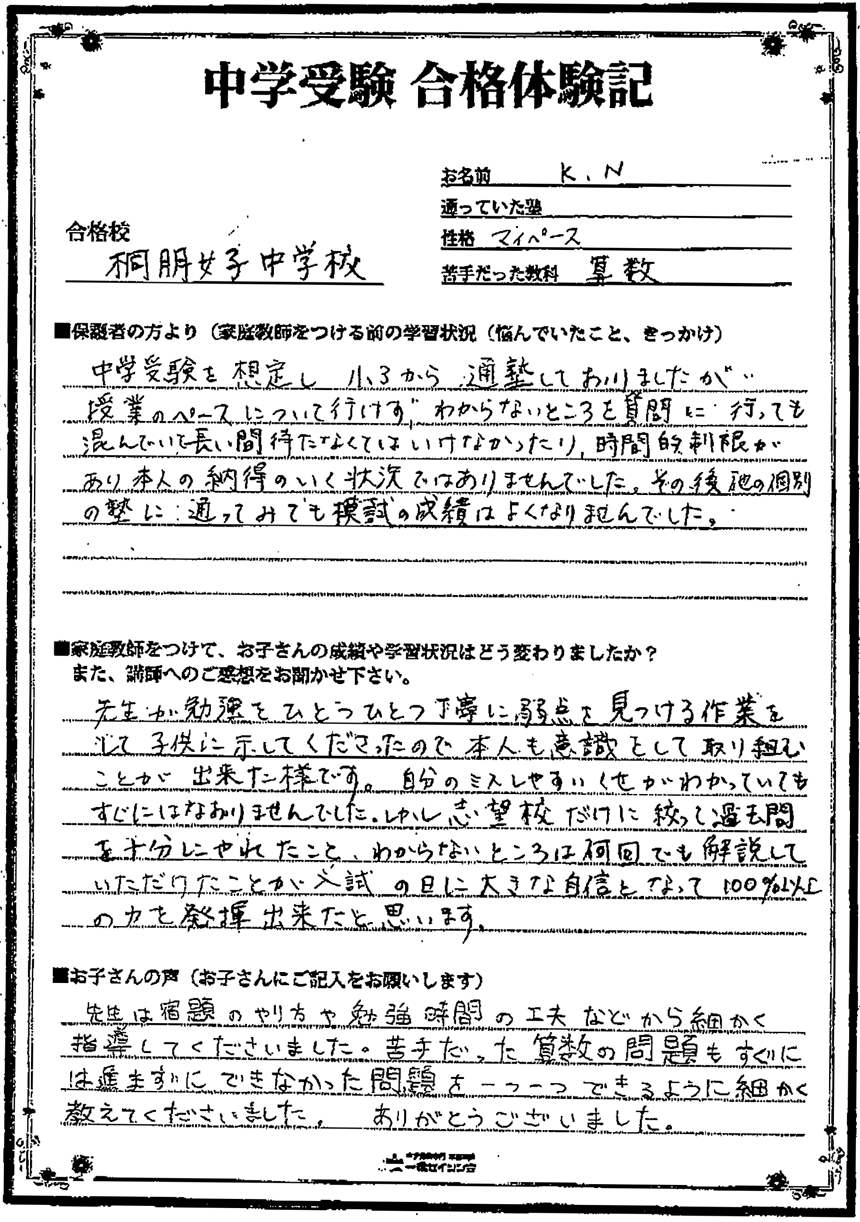 中学受験 合格体験記
お名前 K、N
通っていた塾
合格校
性格 マイペース
桐朋女子中学校
苦手だった教科 算数
■保護者の方より(家庭教師をつける前の学習状況(悩んでいたこと、きっかけ)
中学受験を想定し 小3から 通塾しておりましたが
授業のペースについて行けず、わからないところを質問に行っても
混んでいて長い間待たなくてはいけなかったり、時間的制限が
あり本人の納得のいく状況ではありませんでした。その後他の個別
の塾に通ってみても模試の成績はよくなりませんでした。
■家庭教師をつけて、お子さんの成績や学習状況はどう変わりましたか?
また、講師へのご感想をお聞かせ下さい。
先生が勉強をひとつひとつ丁寧に弱点を見つける作業を
して子供に示してくださったので本人も意識として取り組む
ことが出来た様です。自分のミスしやすいくせがわかっていても
すぐにはなおりませんでした。しかし志望校だけに絞って過去問
を十分にやれたこと、わからないところは何回でも解説して
いただけたことが入試の日に大きな自信となって100%以上
の力を発揮出来たと思います。
■お子さんの声(お子さんにご記入をお願いします)
先生は宿題のやり方や勉強時間の工夫などから細かく
指導してくださいました。苦手だった算数の問題もすぐに
は進まずにできなかった問題を一つ一つできるように細かく
教えてくださいました。 ありがとうございました。